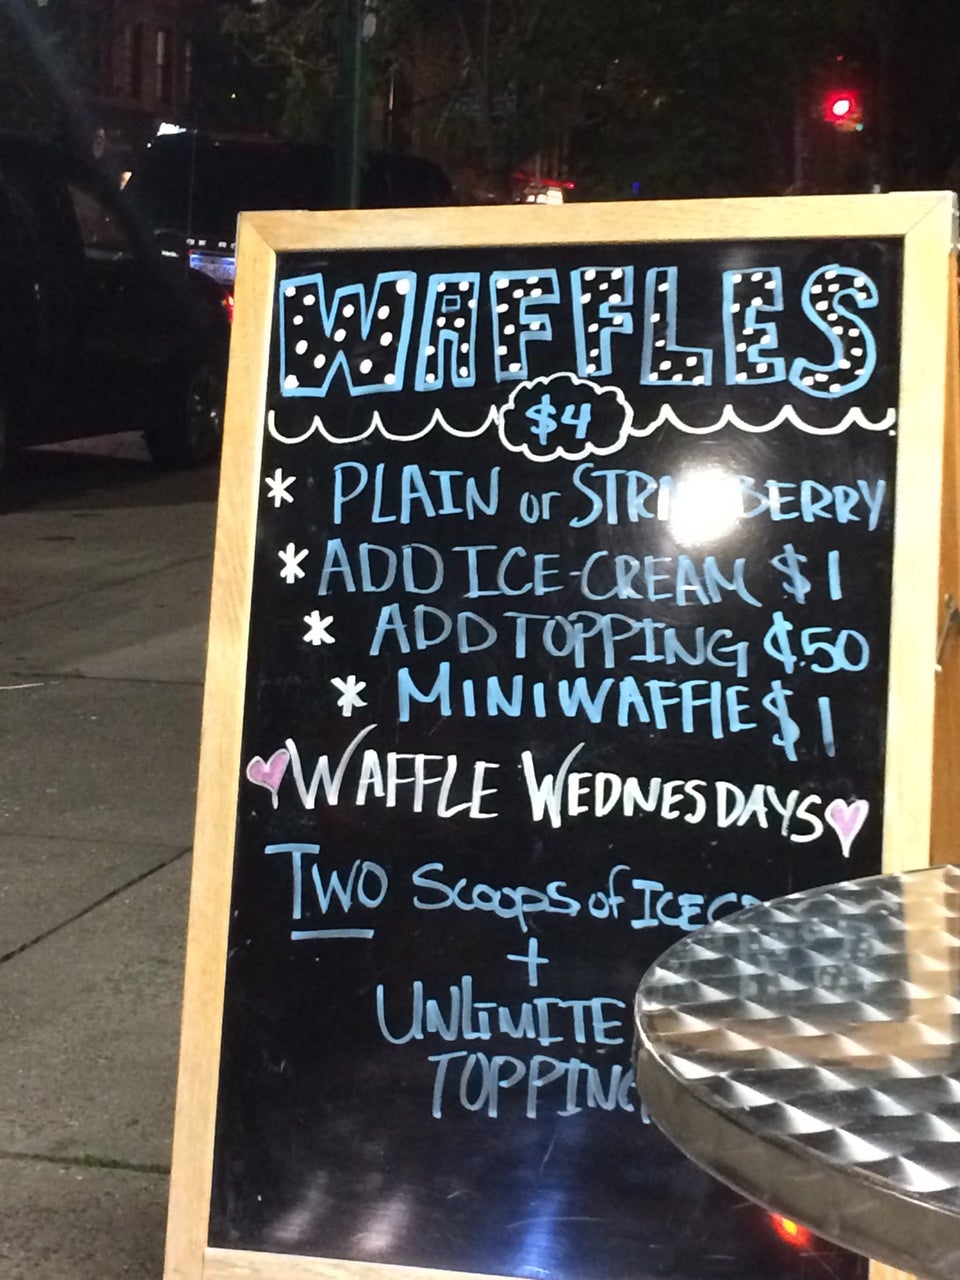 WAFFLES
$4
* PLAIN or STRAWBERRY
* ADD ICE-CREAM $1
* ADD TOPPING $.50
* MINI WAFFLE $1
WAFFLE WEDNESDAYS
TWO Scoops of ICE CR
+
UNLIMITE
TOPPING